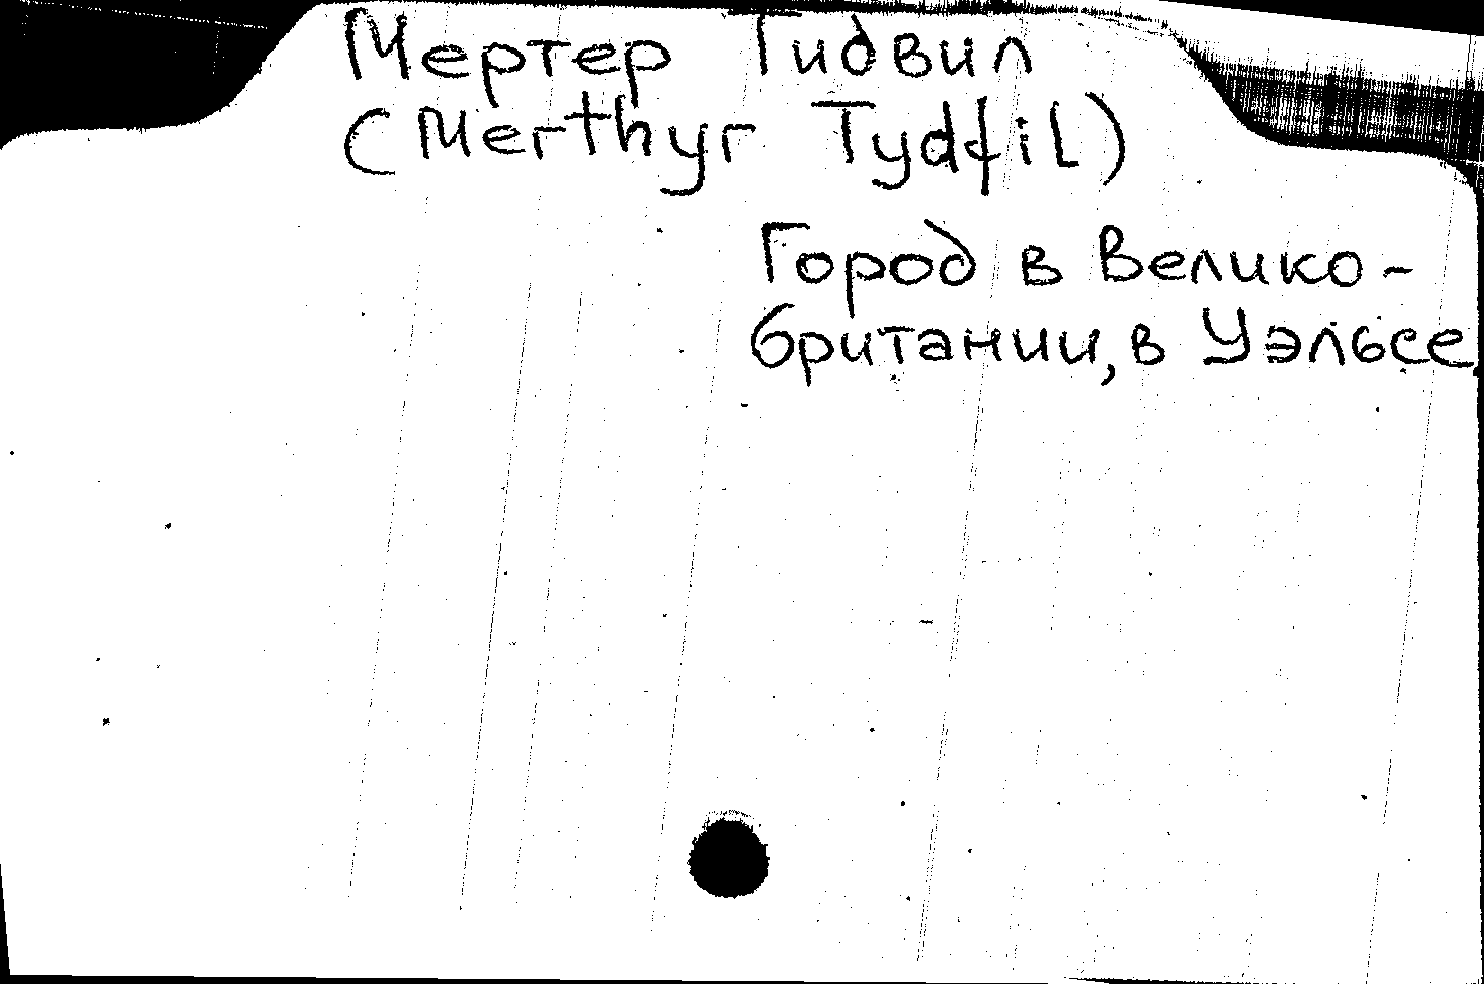 Мертер Тидвил
(Merthyr Tydfil)
Город в Велико-
британии, в Уэльсе